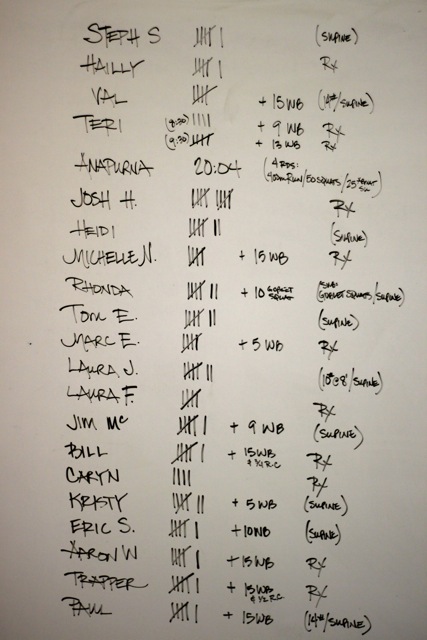 STEPH S 卌 I (SUPINE)
HAILLY 卌 I RX
VAL 卌 + 15 WB (14#/SUPINE)
TERI (8:30) IIII + 9 WB RX
(9:30) 卌 + 13 WB RX
ANAPURNA 20:04 (4 RDS: 400m RUN/50 SQUATS/25
JOSH H. 卌 卌 RX
HEIDI 卌 II (SUPINE)
MICHELLE N. 卌 + 15 WB RX
RHONDA 卌 II + 10 GOBLET SQUAT (SUB: GOBLET SQUATS/SUPINE)
TOM E. 卌 II (SUPINE)
MARC E. 卌 + 5 WB RX
LAURA J. 卌 II (10#@8'/SUPINE)
LAURA F. 卌 RX
JIM MC 卌 I + 9 WB (SUPINE)
BILL 卌 I + 15 WB RX
& 1/2 R.C.
CARYN IIII RX
KRISTY 卌 II + 5 WB (SUPINE)
ERIC S. 卌 I + 10 WB (SUPINE)
AARON W 卌 I + 15 WB RX
TRAPPER 卌 I + 15 WB RX
& 1/2 R.C.
PAUL 卌 I + 15 WB (14#/SUPINE)